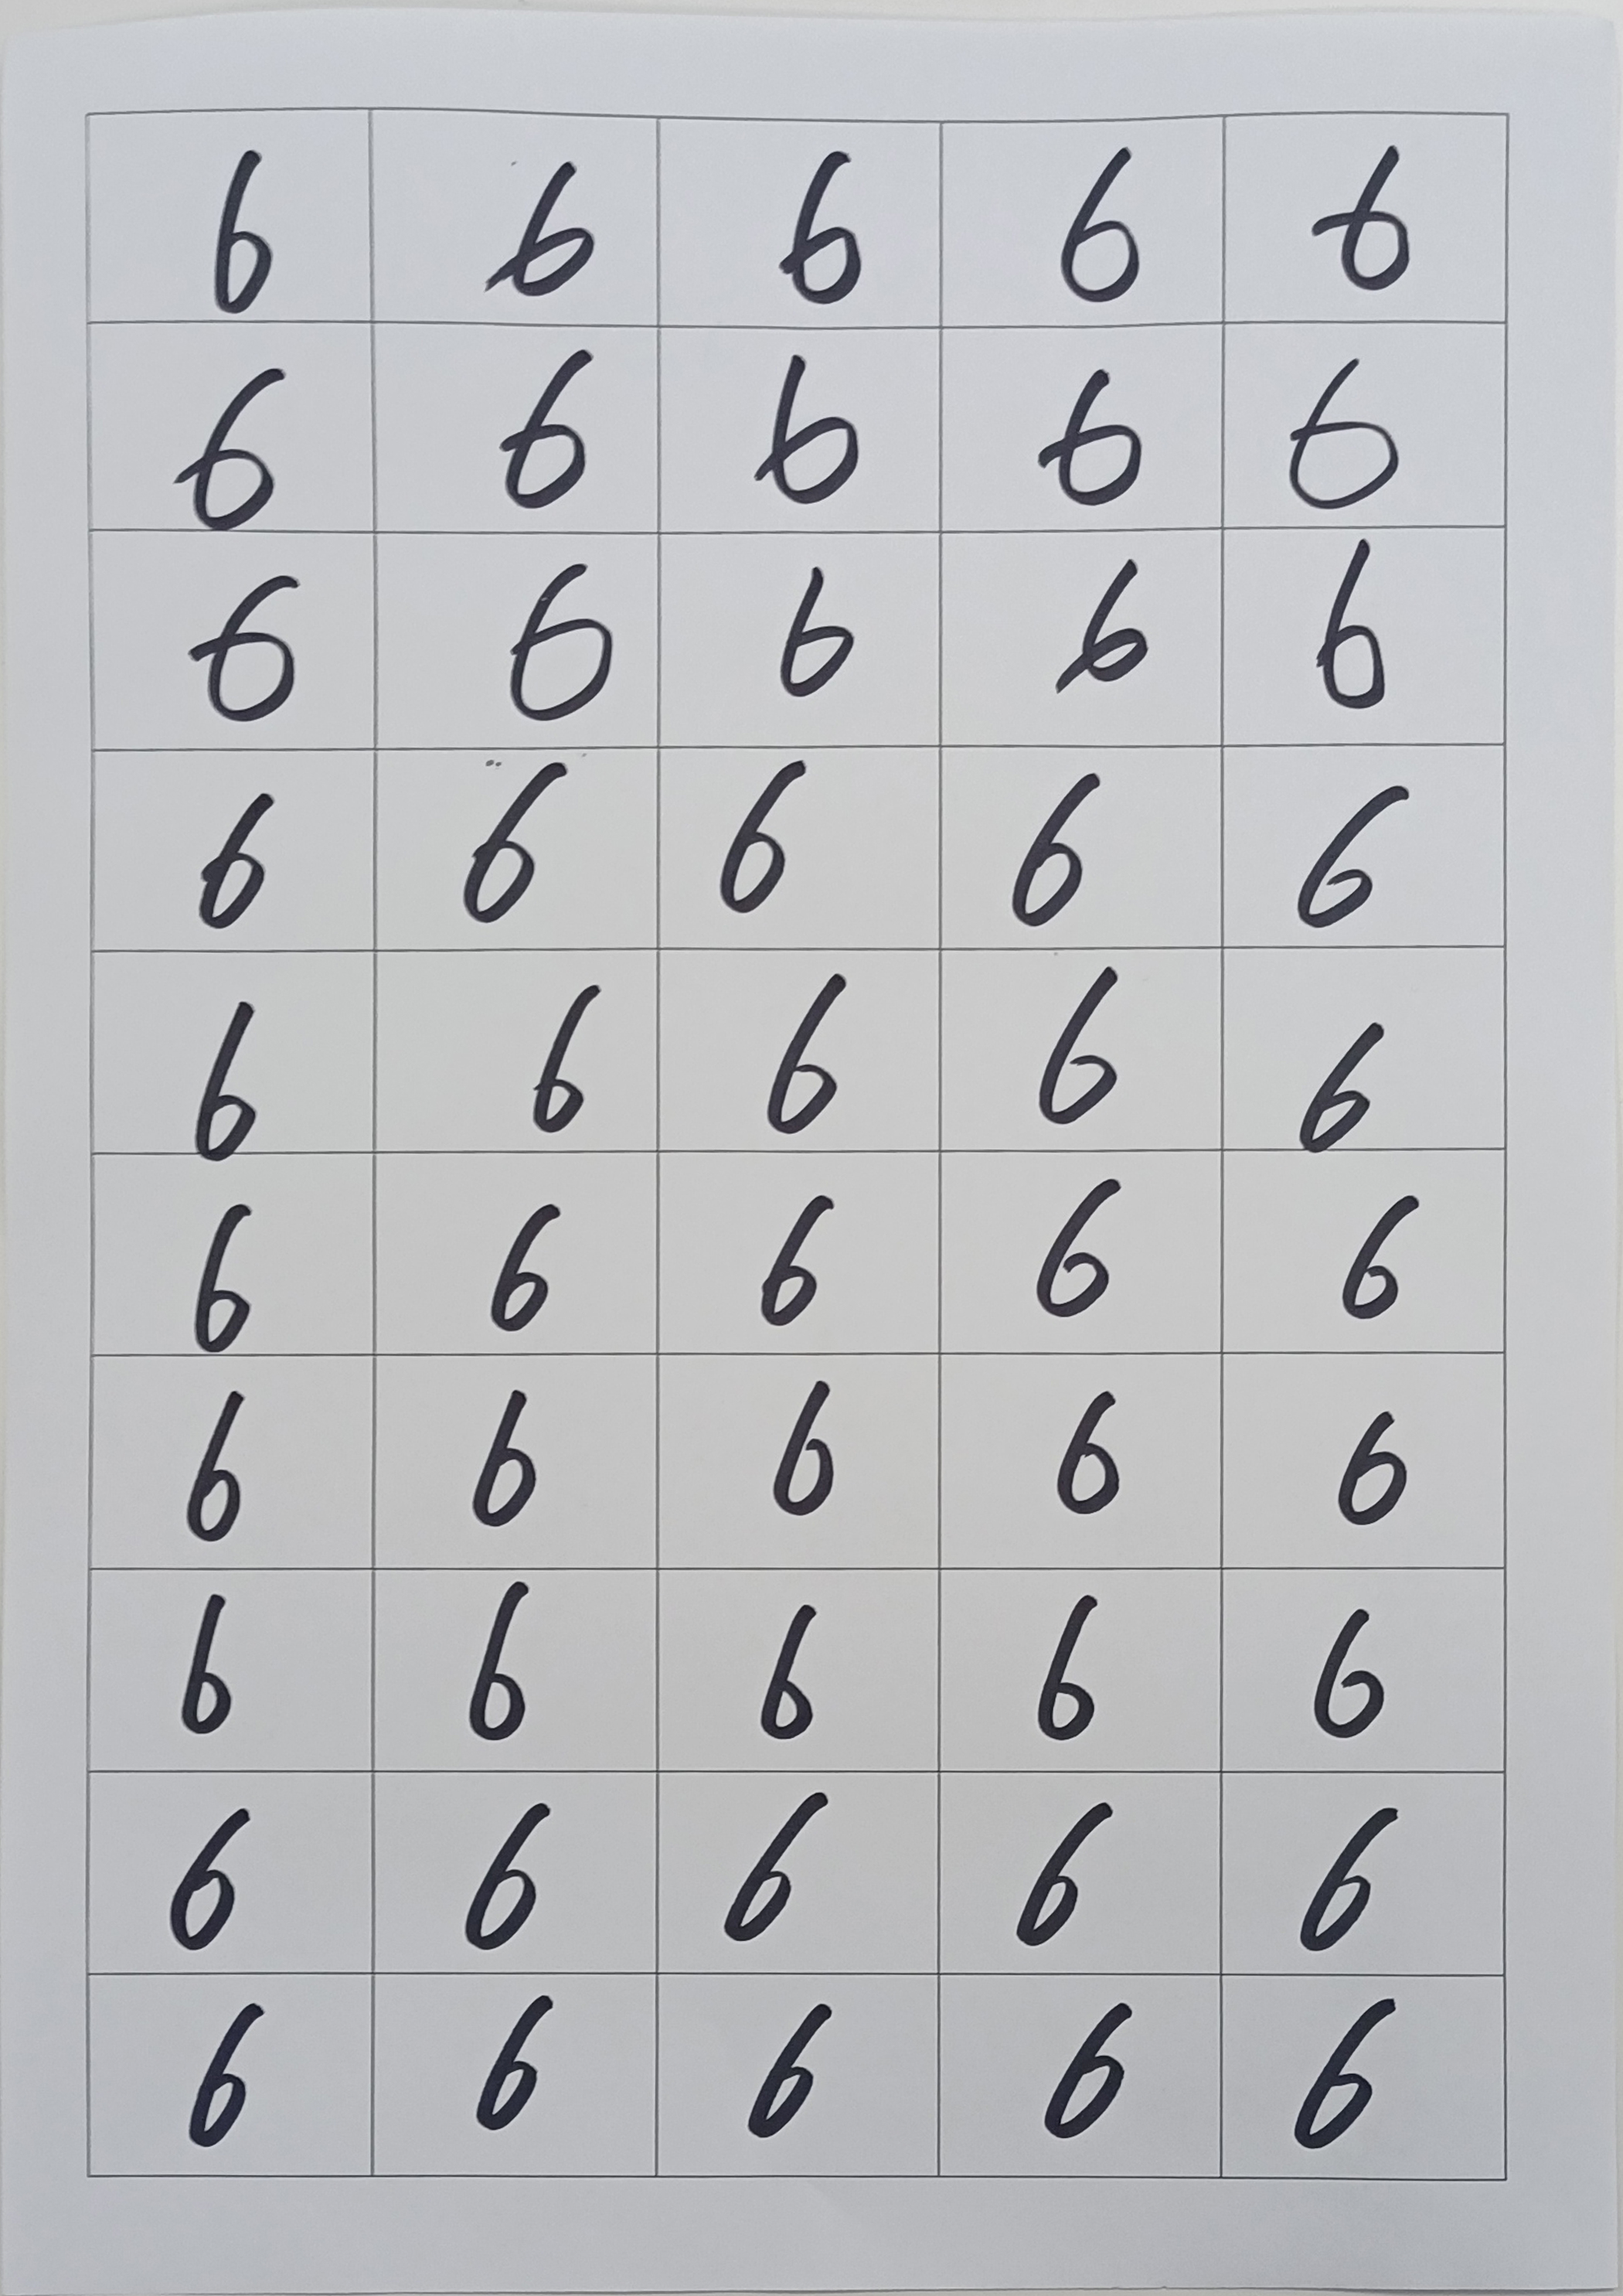 6 6 6 6 6
6 6 6 6 6
6 6 6 6 6
6 6 6 6 6
6 6 6 6 6
6 6 6 6 6
6 6 6 6 6
6 6 6 6 6
6 6 6 6 6
6 6 6 6 6